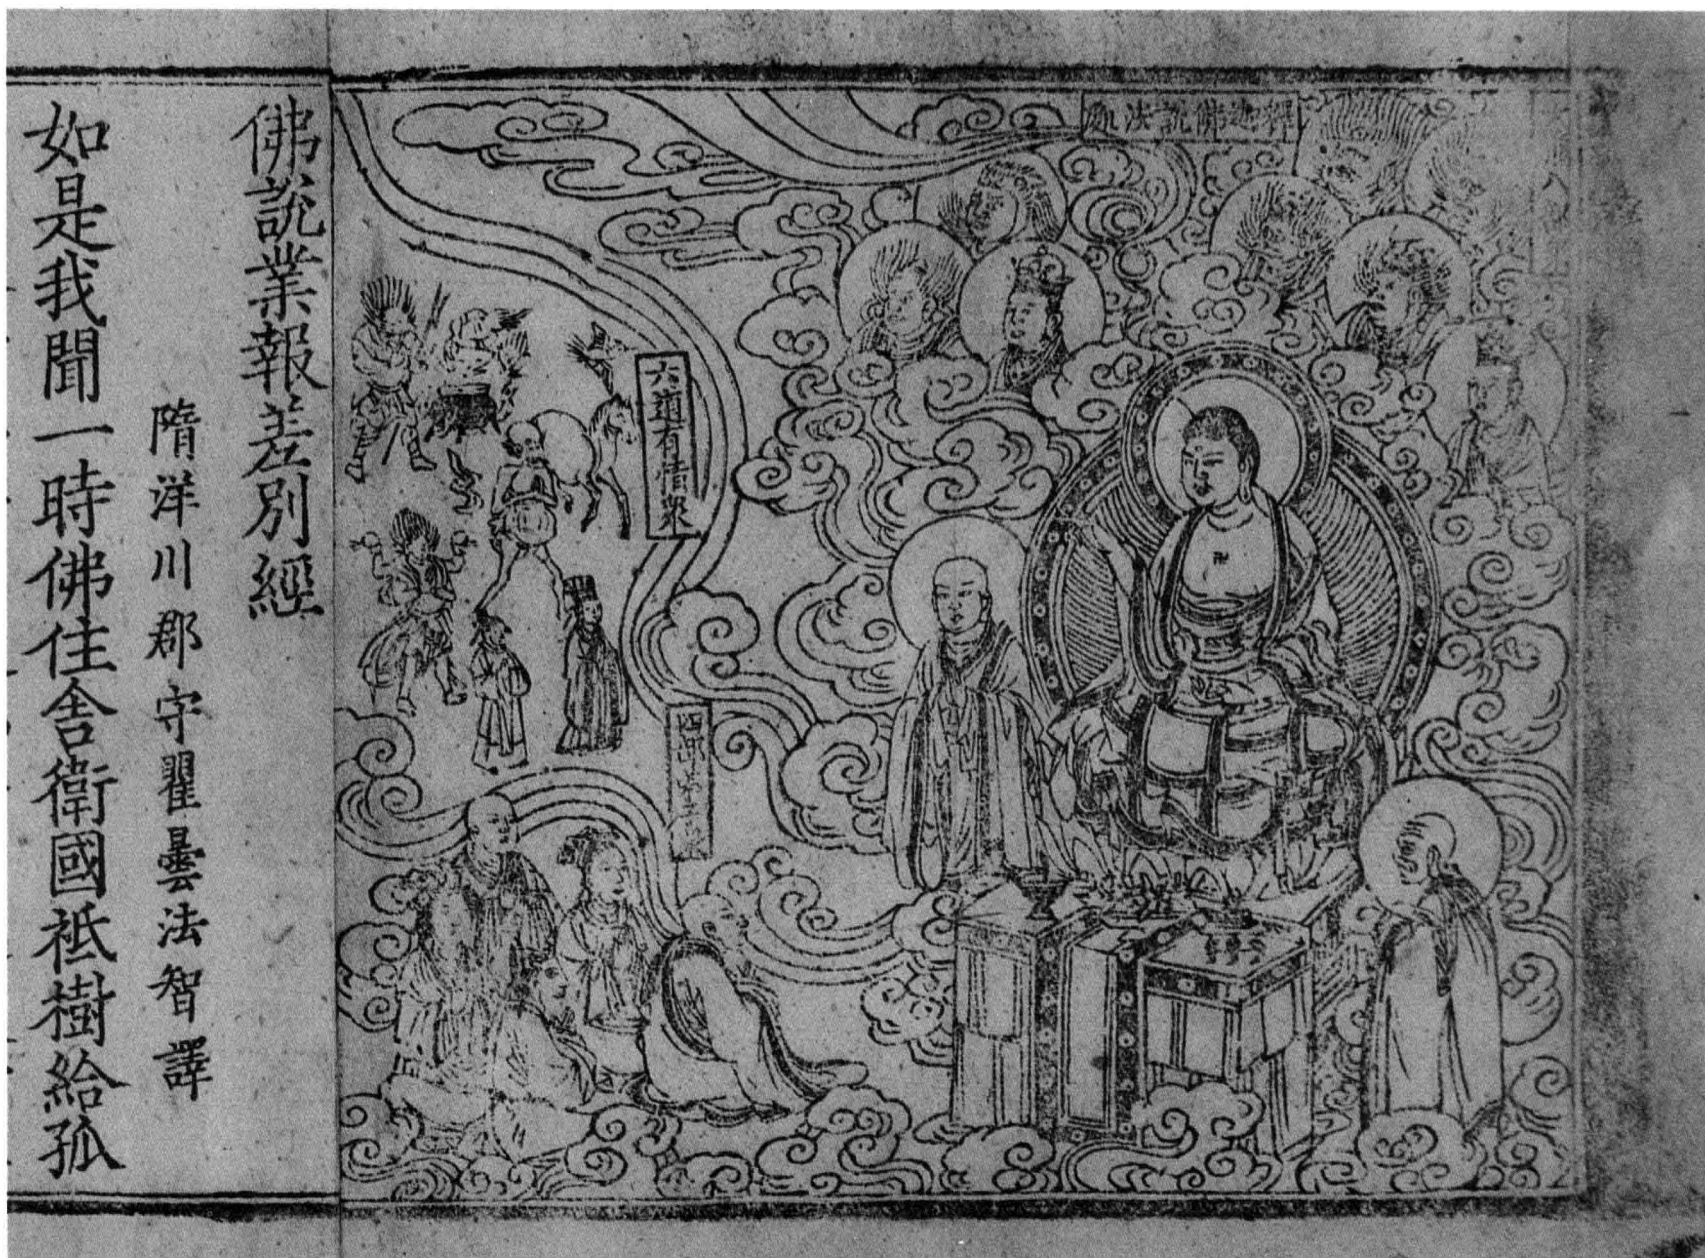 釋迦佛說法處
六道有情衆
四部弟子衆
佛說業報差別經
隋洋川郡守瞿曇法智譯
如是我聞一時佛住舍衛國祇樹給孤